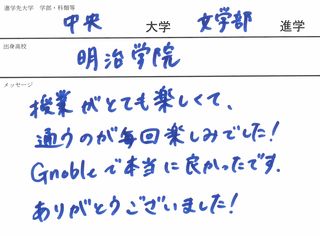 進学先大学 学部・科類等
中央 大学 文学部 進学
出身高校
明治学院
メッセージ
授業がとても楽しくて、
通うのが毎回楽しみでした!
Gnobleで本当に良かったです。
ありがとうございました!